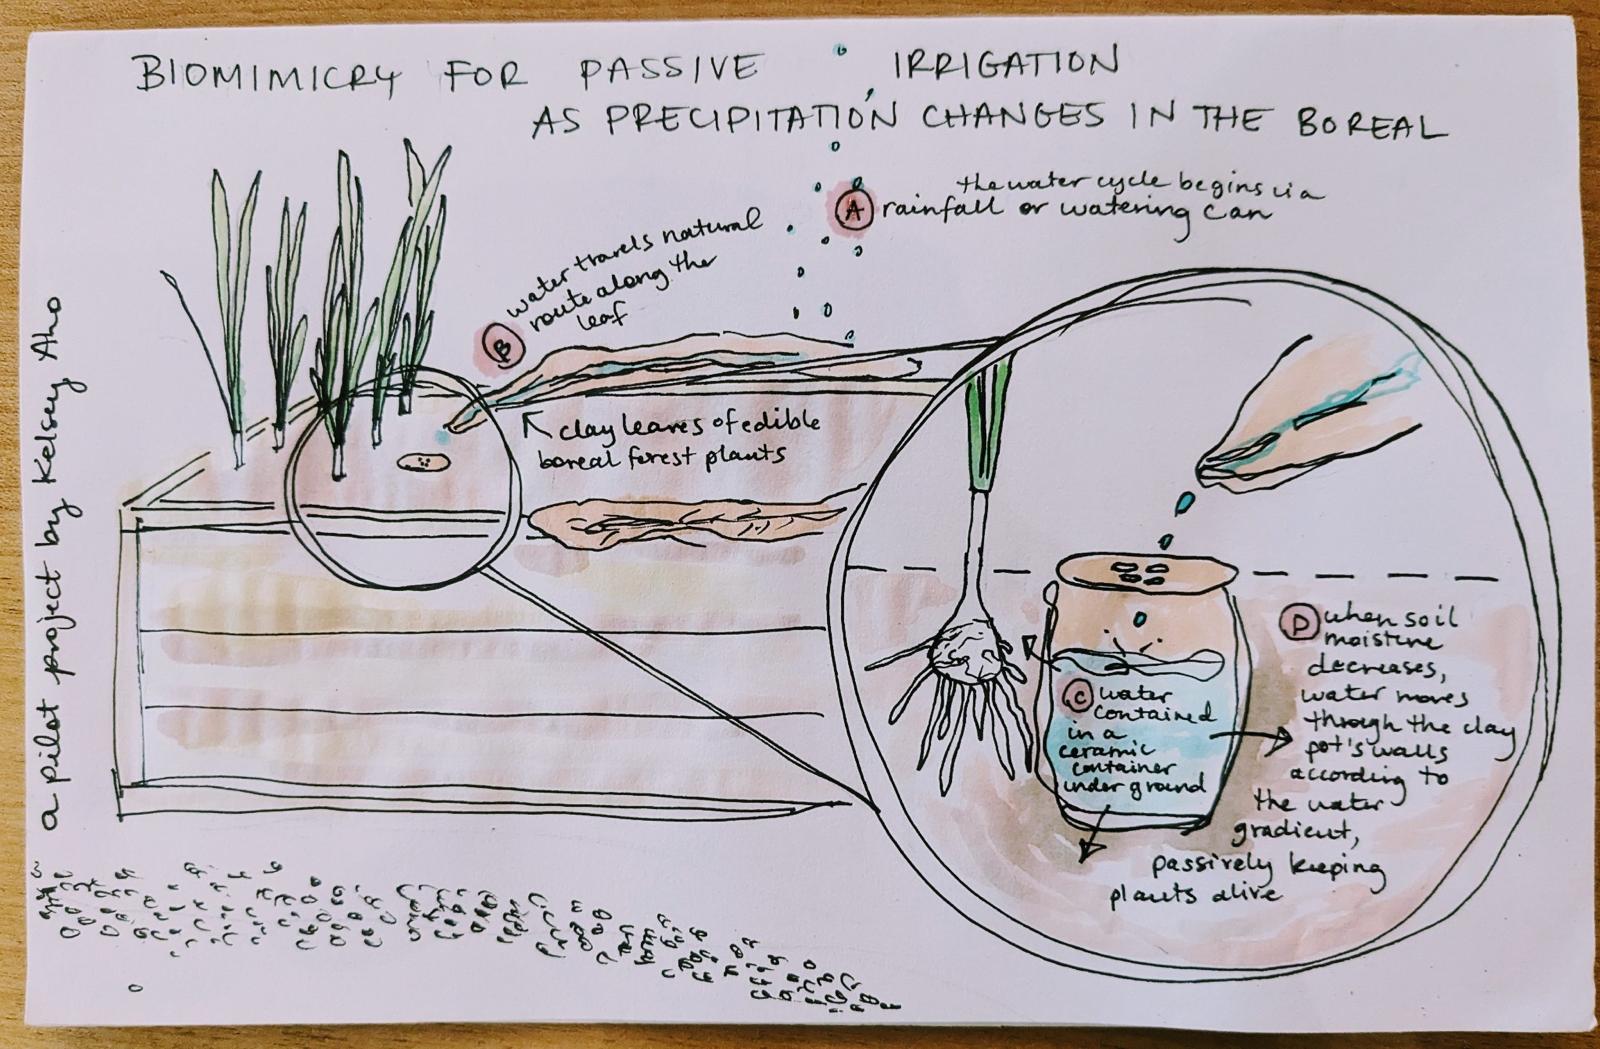 BIOMIMICRY FOR PASSIVE IRRIGATION
AS PRECIPITATION CHANGES IN THE BOREAL
A
the water cycle begins via
rainfall or watering can
B
water travels natural
route along the
leaf
clay leaves of edible
boreal forest plants
a pilot project by Kelsey Aho
C water
contained
in a
ceramic
container
underground
D when soil
moisture
decreases,
water moves
through the clay
pot's walls
according to
the water
gradient,
passively keeping
plants alive